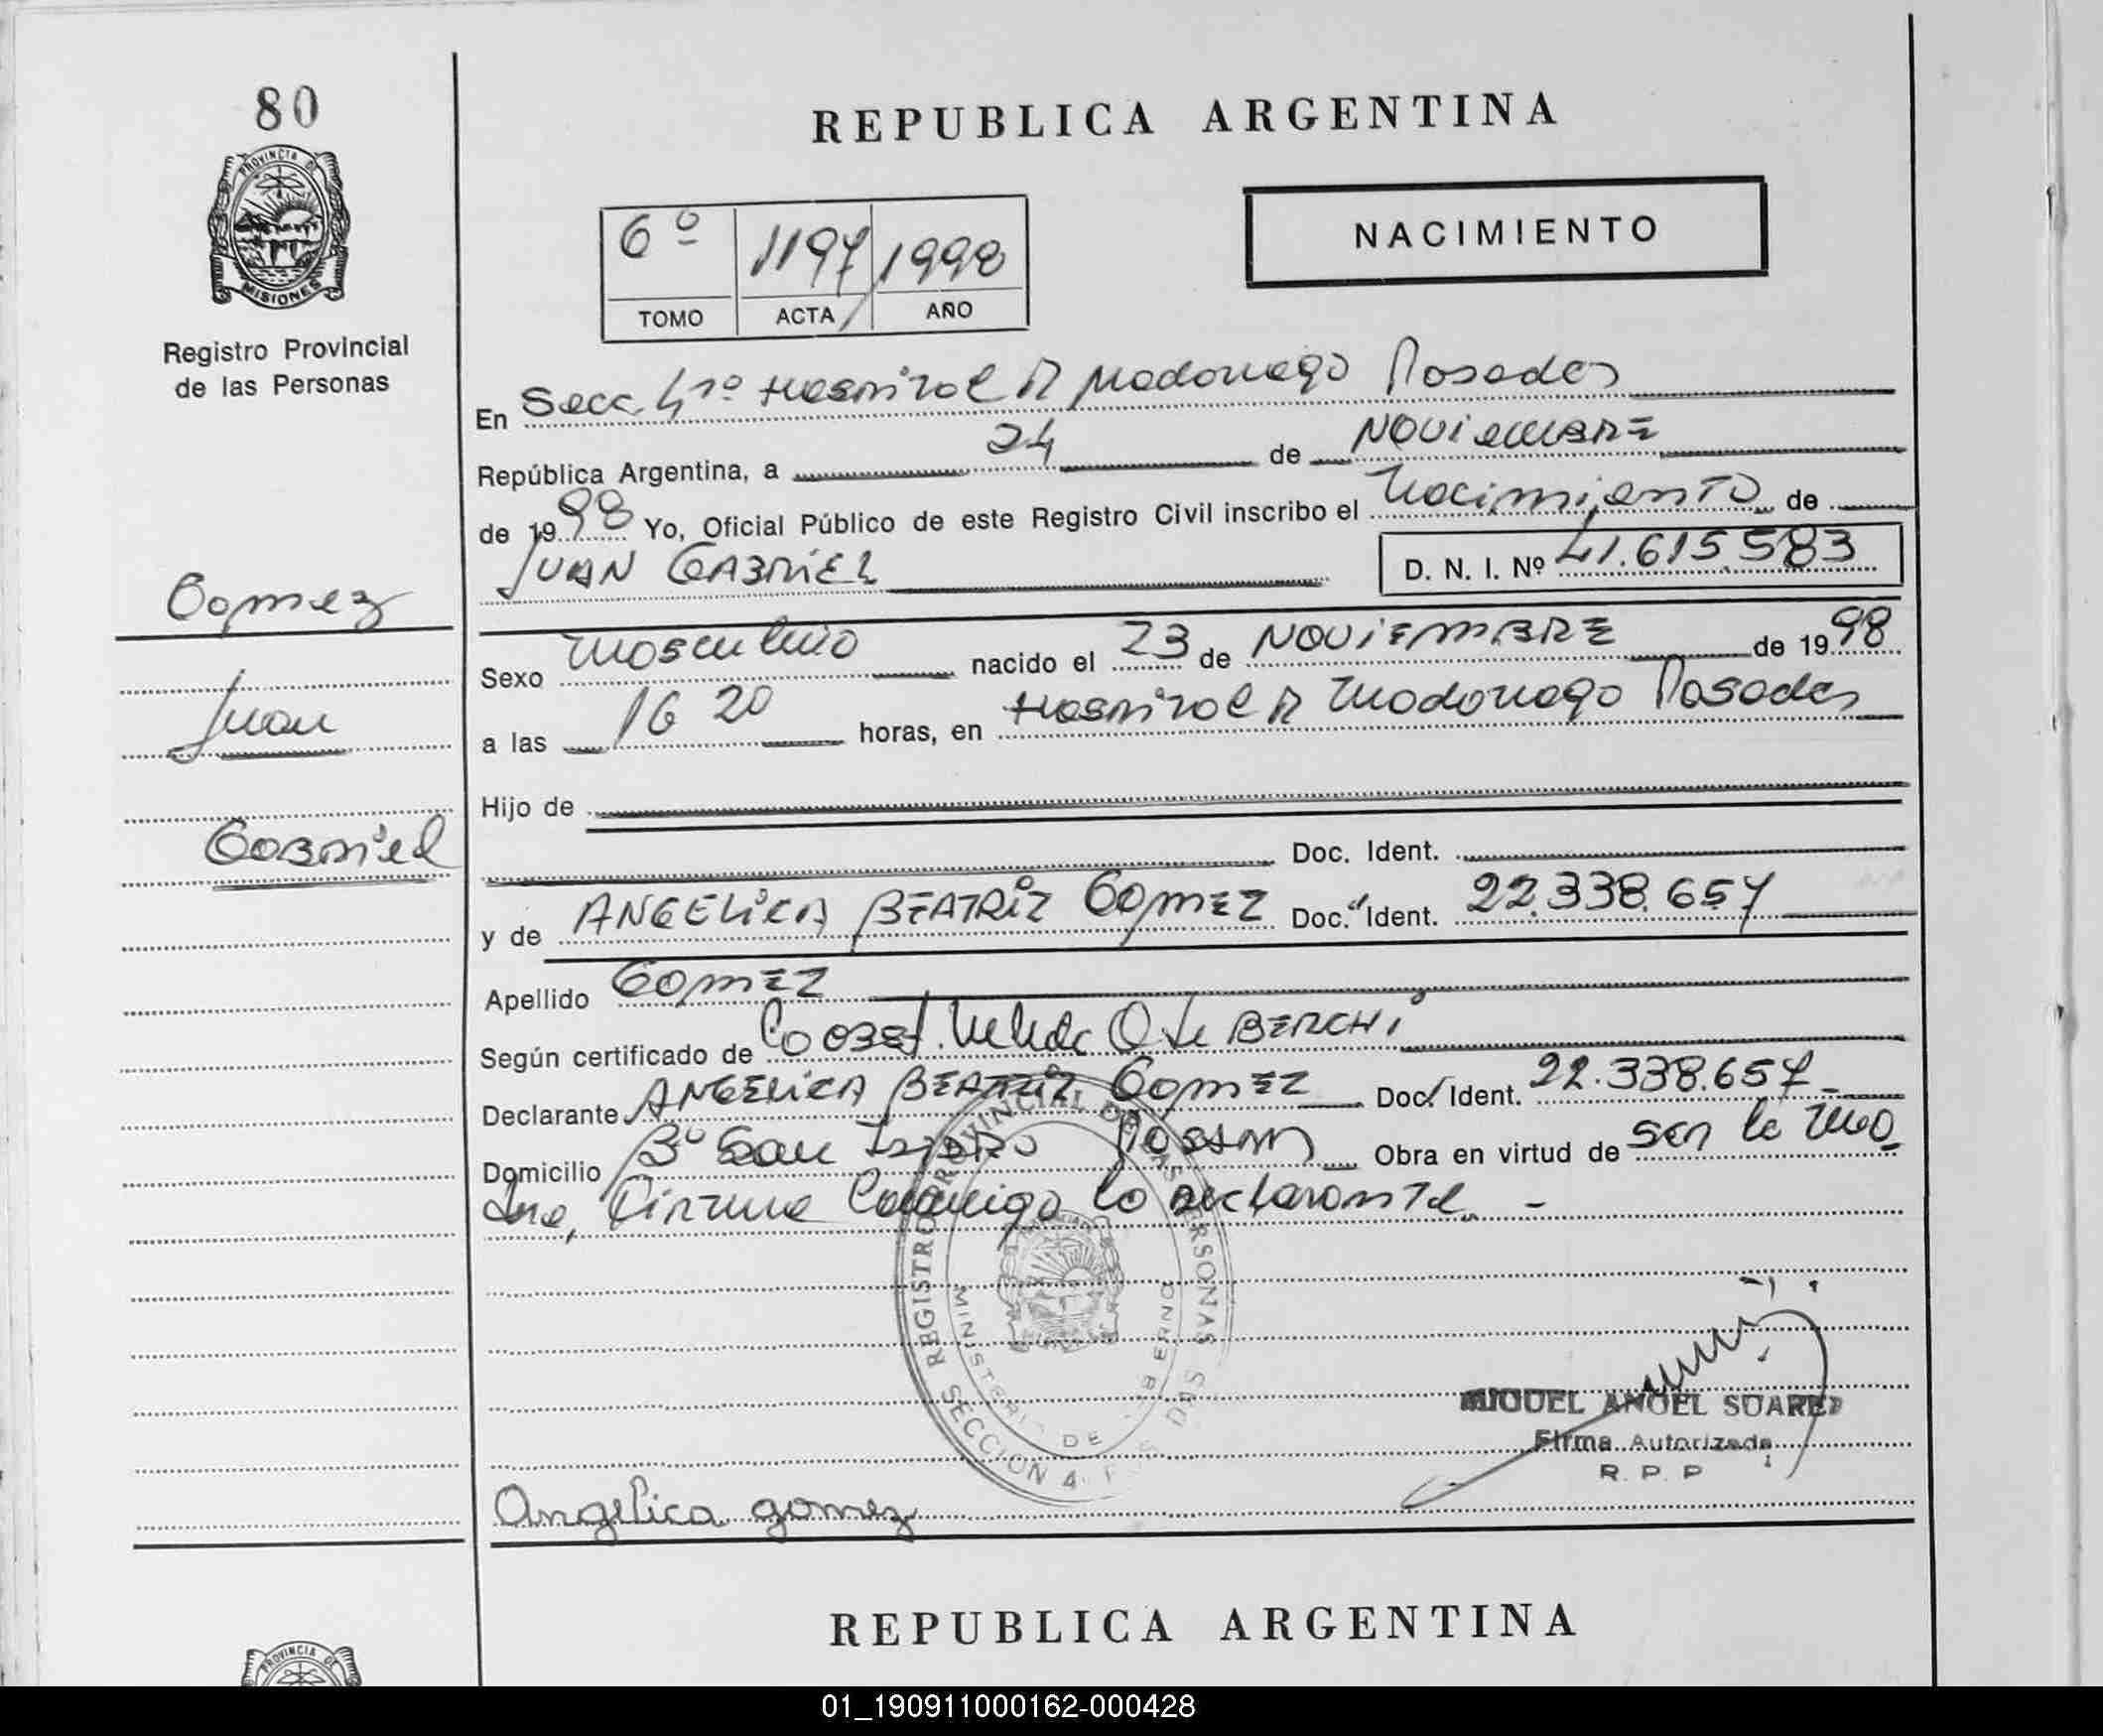 80
PROVINCIA DE
MISIONES
Registro Provincial
de las Personas
REPUBLICA ARGENTINA
6º 1197 1998
TOMO ACTA AÑO
NACIMIENTO
En Secc. 4ta Hospital R Madariaga Posadas
República Argentina, a 24 de NOVIEMBRE
de 1998 Yo, Oficial Público de este Registro Civil inscribo el Nacimiento de
JUAN GABRIEL
D. N. I. Nº 41.615.583
Gomez
Juan
Gabriel
Sexo Masculino nacido el 23 de NOVIEMBRE de 1998
a las 16 20 horas, en Hospital R Madariaga Posadas
Hijo de
Doc. Ident.
y de ANGELICA BEATRIZ GOMEZ Doc. Ident. 22.338.657
Apellido GOMEZ
Según certificado de BERCHI
Declarante ANGELICA BEATRIZ GOMEZ Doc. Ident. 22.338.657
Domicilio Bº San Isidro Obra en virtud de ser la ma
dre, Firma Conmigo la declarante. -
REGISTRO PROVINCIAL DE LAS PERSONAS
MINISTERIO DE GOBIERNO
SECCION 4
MIGUEL ANGEL SUAREZ
Firma Autorizada
R. P. P
Angelica gomez
REPUBLICA ARGENTINA
PROVINCIA DE
01_190911000162-000428